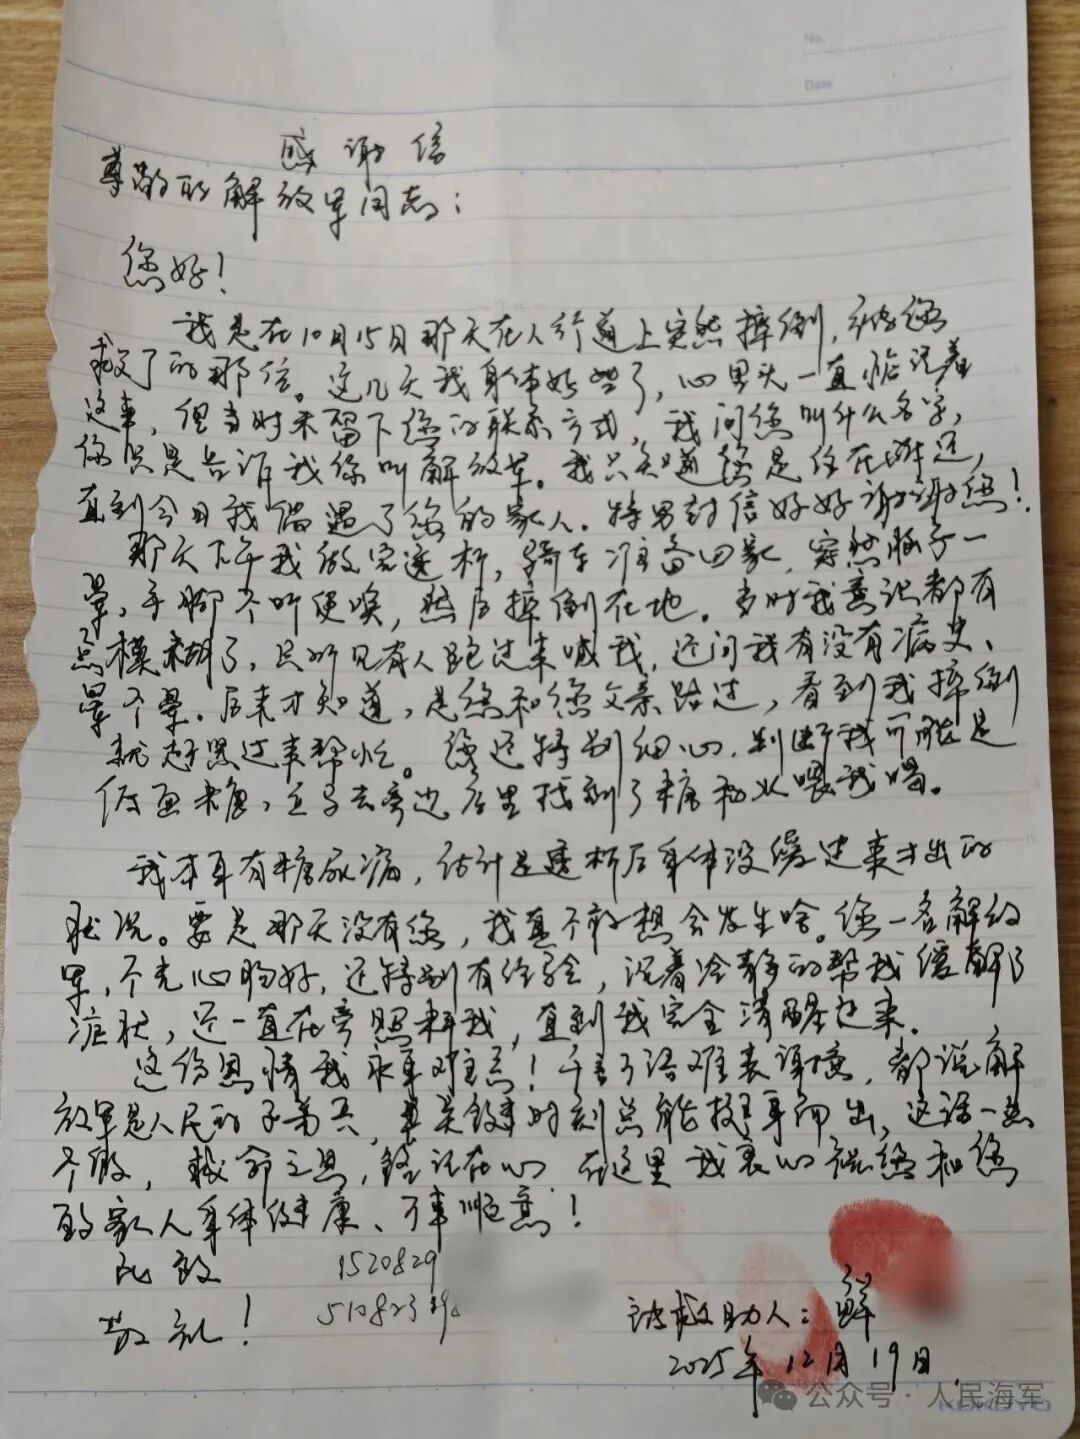 No.
Date
感谢信
尊敬的解放军同志：
您好！
我是在10月15日那天在人行道上突然摔倒，被您
救了的那位。这几天我身体好些了，心里头一直惦记着
这事，但当时未留下您的联系方式，我问您叫什么名字，
您只是告诉我你叫解放军。我只知道您是住在附近，
直到今日我偶遇了您的家人。特写封信好好谢谢您！
那天下午我做完透析，骑车准备回家，突然脑子一
晕，手脚不听使唤，然后摔倒在地。当时我意识都有
点模糊了，只听见有人跑过来喊我，还问我有没有病史、
晕不晕。后来才知道，是您和您父亲路过，看到我摔倒
就赶紧过来帮忙。您还特别细心，判断我可能是
低血糖，立马去旁边店里找到了糖和水喂我喝。
我本身有糖尿病，估计是透析后身体没缓过来才出的
状况。要是那天没有您，我真不敢想会发生啥。您一名解放
军，不光心肠好，还特别有经验，沉着冷静的帮我缓解了
症状，还一直在旁照料我，直到我完全清醒过来。
这份恩情我永事难忘！千言万语难表谢意，都说解
放军是人民的子弟兵，关键时刻总能挺身而出，这话一点
不假，救命之恩，铭记在心，在这里我衷心祝您和您
的家人身体健康、万事顺意！
此致 1520829
敬礼！ 510823
被救助人：鲜
2025年12月19日
公众号·人民海军
KOKUYO